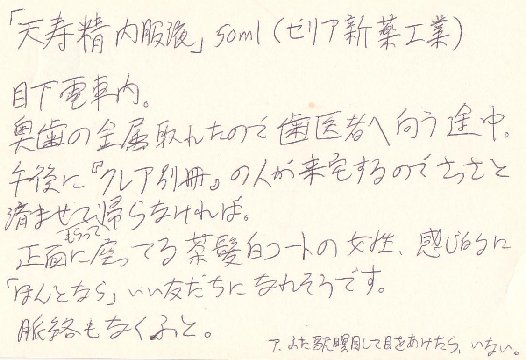 「天寿精内服液」50ml(ゼリア新薬工業)
目下電車内。
奥歯の金属取れたので歯医者へ向う途中。
午後に『クレア別冊』の人が来宅するのでさっさと
済ませてもらって帰らなければ。
正面に座ってる茶髪白コートの女性、感じ的に
「ほんとなら」いい友だちになれそうです。
脈絡もなくふと。
ア、ふた駅瞑目して目をあけたら、いない。